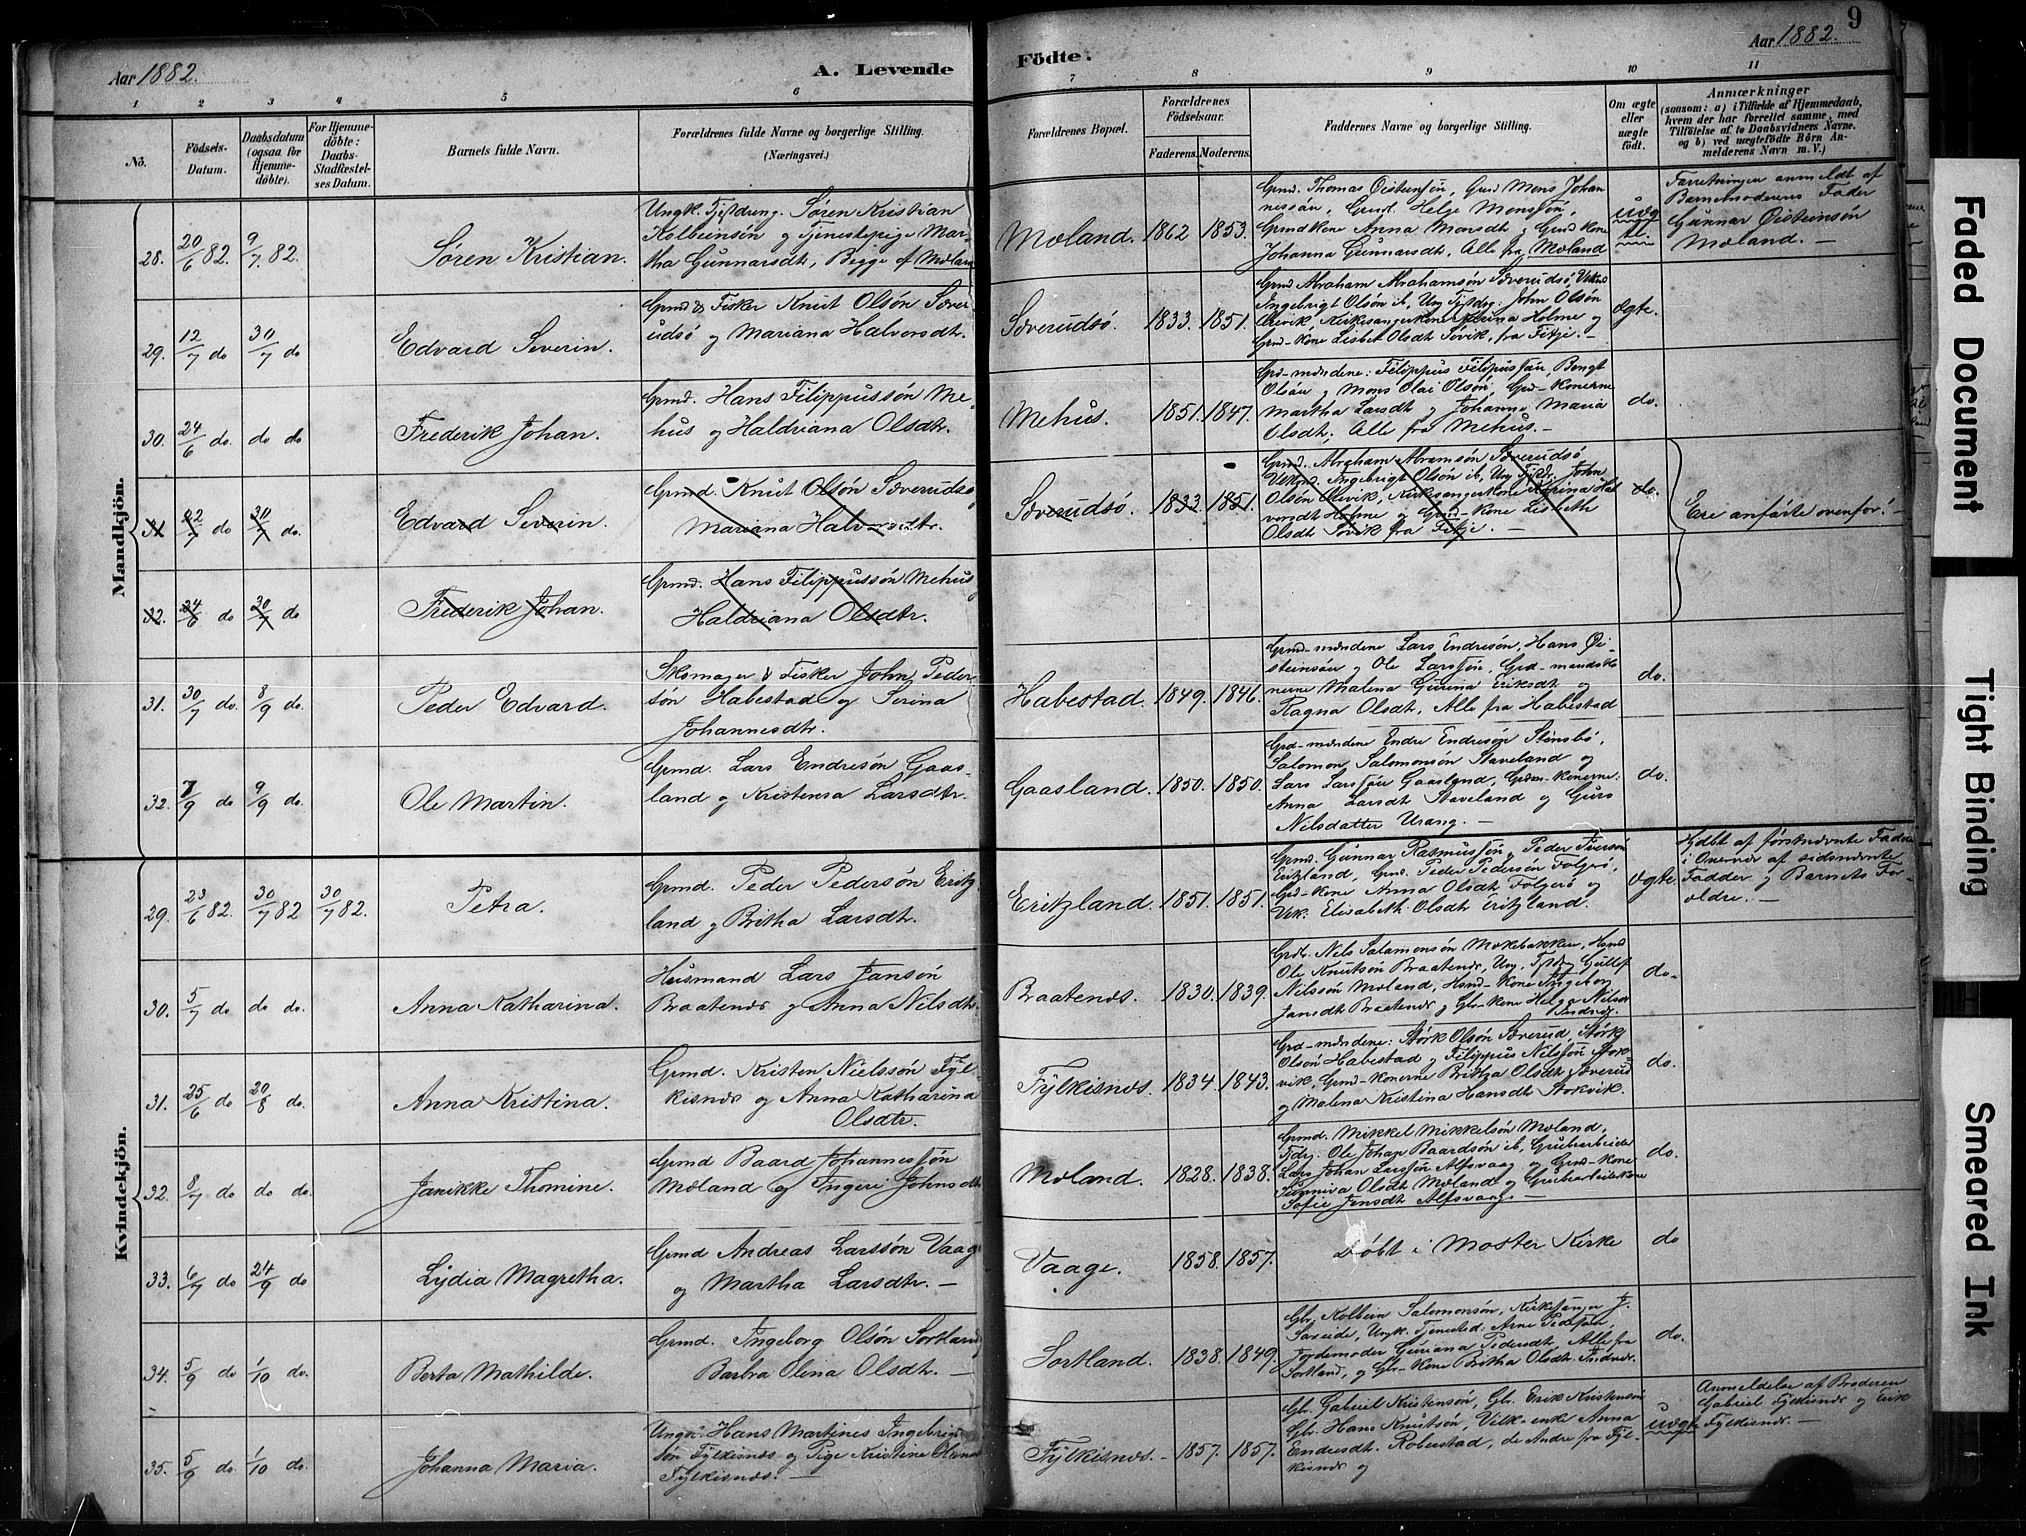 9
Aar 1882.
A. Levende
Födte.
Aar 1882.
1 2 3 4 5 6 7 8 9 10 11
No.
Födsels-
Datum.
Daabsdatum
(ogsaa for
Hjemme-
döbte).
For Hjemme-
döbte:
Daabs-
Stadfæstel-
ses Datum.
Barnets fulde Navn.
Forældrenes fulde Navne og borgerlige Stilling.
(Næringsvei.)
Forældrenes Bopæl.
Forældrenes
Födselsaar.
Faderens. Moderens.
Faddernes Navne og borgerlige Stilling.
Om ægte
eller
uægte
födt.
Anmærkninger
(saasom: a) i Tilfælde af Hjemmedaab,
hvem der har forrettet samme, med
Tilföielse af to Daabsvidners Navne.
og b) ved uægtefödte Börn An-
melderens Navn m. V.)
Mandkjön.
28. 20/6 82. 9/7 82. Søren Kristian.
Ungk. Tjstdreng. Søren Kristian
Kolbeinsøn og Tjenestepige Mar-
tha Gunnarsdtr, Begge af Moland
Moland. 1862 1853.
Grmd. Thomas Øistensøn, Grmd Mons Johan
nessøn, Grmd. Helge Monssøn,
Grmdkone Anna Monsdt og Grmdkone
Johanna Gunnarsdt, Alle fra Moland
Forretningen anmeldt af
Barnemoderens Fader
Gunnar Øisteinsøn
Moland. —
29. 12/7 do 30/7 do Edvard Severin.
Grmd & Fisker Knut Olsøn Sæver
udsø og Mariana Halvorsdtr.
Sæverudsø. 1833. 1851.
Grmd Abraham Abrahamsøn Sæverudsø,
Ingebrigt Olsøn ib, John Olsøn
Kirkesangerkone Karina Holme og
Grmd-kone Lisbet Olsdt Søvik, fra Fitje. —
ægte.
30. 24/6 do. do do Frederik Johan.
Grmd. Hans Filippussøn Me-
hus og Haldriana Olsdtr.
Mehus. 1851. 1847.
Grd-mændene: Filippus Filipussøn, Bengt
Olsøn og Mons Olai Olsøn, Grd-konerne
Martha Larsdt og Johanna Maria
Olsdt. Alle fra Mehus. —
do.
31 12/7 do 30/7 do. Edvard Severin.
Grmd. Knut Olsøn Sæverudsø
Mariana Halvorsdtr.
Sæverudsø 1833. 1851.
Grmd. Abraham Abramsøn Sæverudsø
Ingebrigt Olsøn ib, John
Olsøn Kirkesangerkone Karina Hal
vorsdt Holme og Grmd-kone Lisbeth
Olsdt Søvik fra Fitje. —
do.
Ere anførte ovenfor! —
32. 24/6 do 30/7 do Frederik Johan.
Grmd. Hans Filippussøn Mehus
Haldriana Olsdtr.
31. 30/7 do. 8/9 do. Peder Edvard.
Skomager & Fisker John Peder
søn Habestad og Serina
Johannesdtr.
Habestad. 1849. 1846.
Grmd-mændene Lars Endresøn, Hans Øi-
steinsøn og Ole Larssøn, Grd-mandsko
nerne Malena Gurina Eriksdt og
Ragna Olsdt, Alle fra Habestad
do.
32. 7/9 do 9/9 do. Ole Martin.
Grmd. Lars Endresøn Gaas-
land og Kristensa Larsdtr.
Gaasland. 1850. 1850.
Grd-mændene Endre Endresøn Stensbø,
Salomon Salomonsøn Staveland og
Lars Larssøn Gaasland, Grdm-konerne:
Anna Larsdt Staveland og Guro
Nilsdatter Urang. —
do.
Kvindekjön.
29. 23/6 82. 30/7 82 30/7 82. Petra.
Grmd. Peder Pedersøn Eritz-
land og Britha Larsdt.
Eritzland. 1851. 1851.
Grmd. Gunnar Rasmussøn, Peder Iversøn
Eritzland, Grmd. Peder Pedersøn Folgerø,
Grd-kone Anna Olsdt Folgerø og
Elisabeth Olsdt Eritzland.
ægte.
Hjdbt af førstnævnte Fadder
i Overvær af sidstnævnte
Fadder og Barnets For-
ældre. —
30. 5/7 do do do. Anna Katharina.
Husmand Lars Jansøn
Braatenæs og Anna Nilsdtr.
Braatenæs. 1830. 1839.
Grdb. Nils Salamonsøn Mokebakken, Hsmd
Ole Knutsøn Braatenæs, Ung. Tjdrg Gullef
Nilssøn Moland, Hsmd-kone Ingeborg
Jansdt Braatenæs og Gbr-kone Helga Nilsdr
Indvig.
do.
31. 25/6 do 20/8 do. Anna Kristina.
Grmd. Kristen Nielssøn Fyl-
kisnæs og Anna Katharina
Olsdtr.
Fylkisnæs. 1834. 1843.
Grd-mændene: Størk Olsøn Sæverud, Størk
Olsøn Habestad og Filippus Nilssøn Stok-
vik, Grmd-konerne Britha Olsdt Sæverud
og Malena Kristina Hansdt Stokvik.
do.
32. 8/7 do do do. Janikke Thomine.
Grmd Baard Johannessøn
Moland og Ingeri Johnsdt
Moland. 1828. 1838.
Grmd. Mikkel Mikkelsøn Moland,
Tjdrg. Ole Johan Baardsøn ib, Grubearbeider
Lars Johan Larssøn Alfsvaag og Grmd-kone
Synniva Olsdt Moland og Grubearbeiderkone
Sofie Jensdt Alfsvaag. —
do.
33. 6/7 do 24/9 do Lydia Magretha.
Grmd Andreas Larssøn Vaage
og Martha Larsdtr. —
Vaage. 1858. 1857.
Døbt i Moster Kirke
do
34. 5/9 do 1/10 do. Berta Mathilde.
Grmd. Ingeborg Olsøn Sortland
Barbra Olena Olsdtr. —
Sortland. 1838. 1849.
Gbr. Kolbein Salomonsøn, Kirkesanger J.
Sareide, Ungk. Tjenested. Arne Pedersøn,
Jordemoder Guriana Pedersdt, Alle fra
Sortland, og Gbr-kone Britha Olsdt Indvær.
do.
35. 5/9 do. 1/10 do. Johanna Maria.
Ungk. Hans Martines Ingebrigt
søn Fylkisnæs og Pige Kristine
Fylkisnæs. —
Fylkisnæs. 1857. 1857.
Gbr. Gabriel Kristensøn, Gbr. Erik Kristensøn
Gbr. Hans Knutsøn, Enke Anna
Endresdt. Roberstad, de Andre fra Fyl-
kisnæs og
uægte
Anmeldelse af Broderen
Gabriel Fylkisnæs og Erik
Fylkisnæs. —
Faded Document
Tight Binding
Smeared Ink